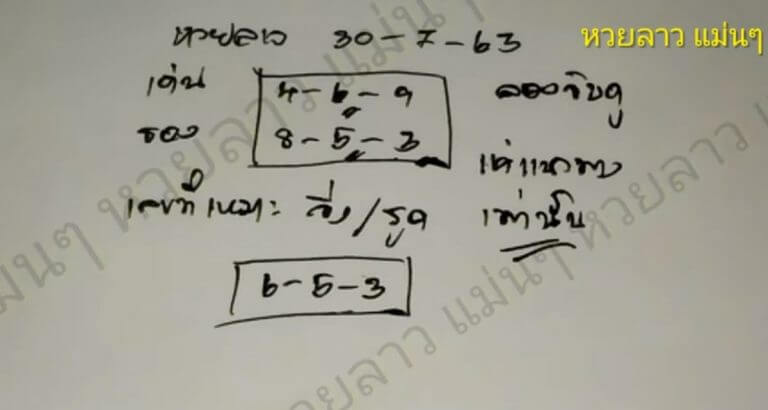 หวยลาว 30-7-63 หวยลาว แม่นๆ
เด่น 4-6-9 ลองจับดู
รอง 8-5-3
เป็นแนวทาง
เลขที่เหมาะ วิ่ง/รูด เท่านั้น
6-5-3
หวยลาว แม่นๆ หวยลาว แม่นๆ